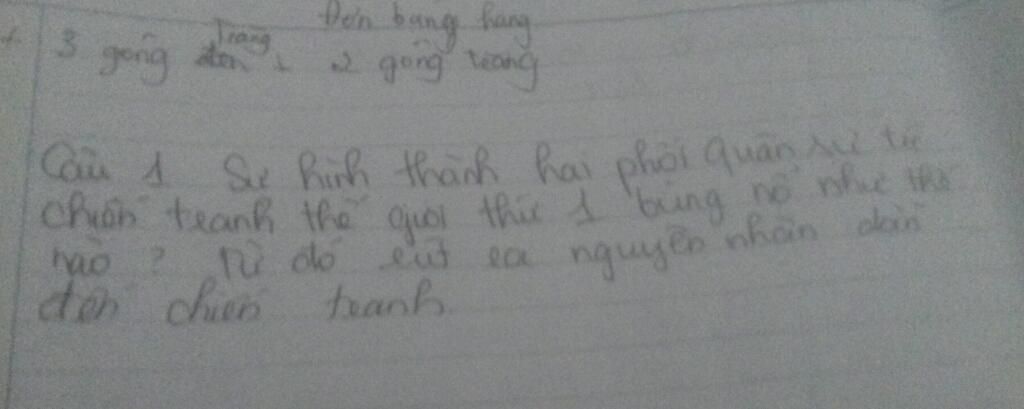 Đơn bang hang
3 gong trang 2 gong trang
Câu 1 Sự hình thành hai phôi quân sự từ
chiến tranh thế giơi thứ 1 bùng nổ như thê
nào ? Từ đó rút ra nguyên nhân dẫn
đến chiến tranh.